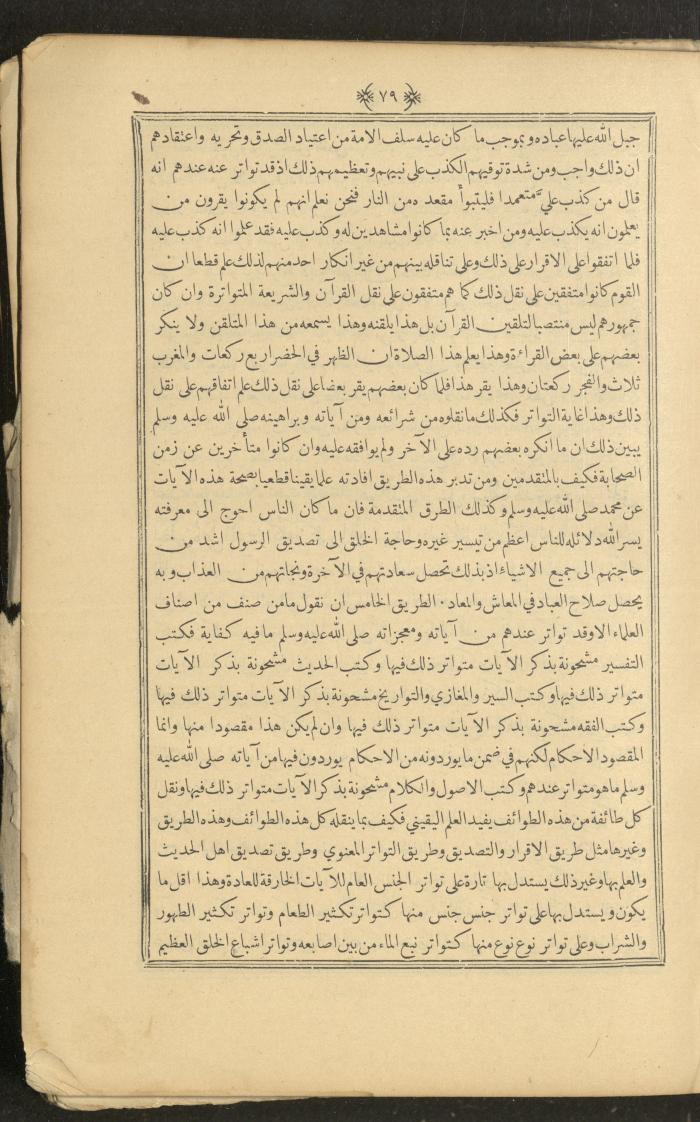 ٧٩
جبل الله عليها عباده وبموجب ما كان عليه سلف الامة من اعتياد الصدق وتحريه واعتقادهم
ان ذلك واجب ومن شدة توقيهم الكذب على نبيهم وتعظيمهم ذلك اذ قد تواتر عنه عندهم انه
قال من كذب علي متعمدا فليتبوأ مقعده من النار فنحن نعلم انهم لم يكونوا يقرون من
يعلمون انه يكذب عليه ومن اخبر عنه بما كانوا مشاهدين له وكذب عليه فقد علموا انه كذب عليه
فلما اتفقوا على الاقرار على ذلك وعلى تناقله بينهم من غير انكار احد منهم لذلك علم قطعا ان
القوم كانوا متفقين على نقل ذلك كما هم متفقون على نقل القرآن والشريعة المتواترة وان كان
جمهورهم ليس منتصبا لتلقين القرآن بل هذا يلقنه وهذا يسمعه من هذا المتلقن ولا ينكر
بعضهم على بعض القراءة وهذا يعلم هذا الصلاة ان الظهر في الحضر اربع ركعات والمغرب
ثلاث والفجر ركعتان وهذا يقر هذا فلما كان بعضهم يقر بعضا على نقل ذلك علم اتفاقهم على نقل
ذلك وهذا غاية التواتر فكذلك ما نقلوه من شرائعه ومن آياته وبراهينه صلى الله عليه وسلم
يبين ذلك ان ما انكره بعضهم رده على الآخر ولم يوافقه عليه وان كانوا متأخرين عن زمن
الصحابة فكيف بالمتقدمين ومن تدبر هذه الطريق افادته علما يقينا قطعيا بصحة هذه الآيات
عن محمد صلى الله عليه وسلم وكذلك الطرق المتقدمة فان ما كان الناس احوج الى معرفته
يسر الله دلائله للناس اعظم من تيسير غيره وحاجة الخلق الى تصديق الرسول اشد من
حاجتهم الى جميع الاشياء اذ بذلك تحصل سعادتهم في الآخرة ونجاتهم من العذاب وبه
يحصل صلاح العباد في المعاش والمعاد · الطريق الخامس ان نقول ما من صنف من اصناف
العلماء الا وقد تواتر عندهم من آياته ومعجزاته صلى الله عليه وسلم ما فيه كفاية فكتب
التفسير مشحونة بذكر الآيات متواتر ذلك فيها وكتب الحديث مشحونة بذكر الآيات
متواتر ذلك فيها وكتب السير والمغازي والتواريخ مشحونة بذكر الآيات متواتر ذلك فيها
وكتب الفقه مشحونة بذكر الآيات متواتر ذلك فيها وان لم يكن هذا مقصودا منها وانما
المقصود الاحكام لكنهم في ضمن ما يوردونه من الاحكام يوردون فيها من آياته صلى الله عليه
وسلم ما هو متواتر عندهم وكتب الاصول والكلام مشحونة بذكر الآيات متواتر ذلك فيها ونقل
كل طائفة من هذه الطوائف يفيد العلم اليقيني فكيف بما ينقله كل هذه الطوائف وهذه الطريق
وغيرها مثل طريق الاقرار والتصديق وطريق التواتر المعنوي وطريق تصديق اهل الحديث
والعلم بها وغير ذلك يستدل بها تارة على تواتر الجنس العام للآيات الخارقة للعادة وهذا اقل ما
يكون ويستدل بها على تواتر جنس جنس منها كتواتر تكثير الطعام وتواتر تكثير الطهور
والشراب وعلى تواتر نوع نوع منها كتواتر نبع الماء من بين اصابعه وتواتر اشباع الخلق العظيم